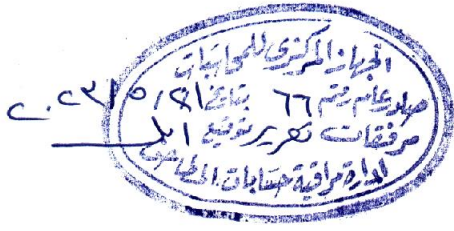 الجهاز المركزى للمحاسبات
صادر عام رقم ٦٦ بتاريخ ٢٠٢٣/٥/٢١
مرفقات تقرير توقيع
ادارة مراقبة حسابات المطاحن